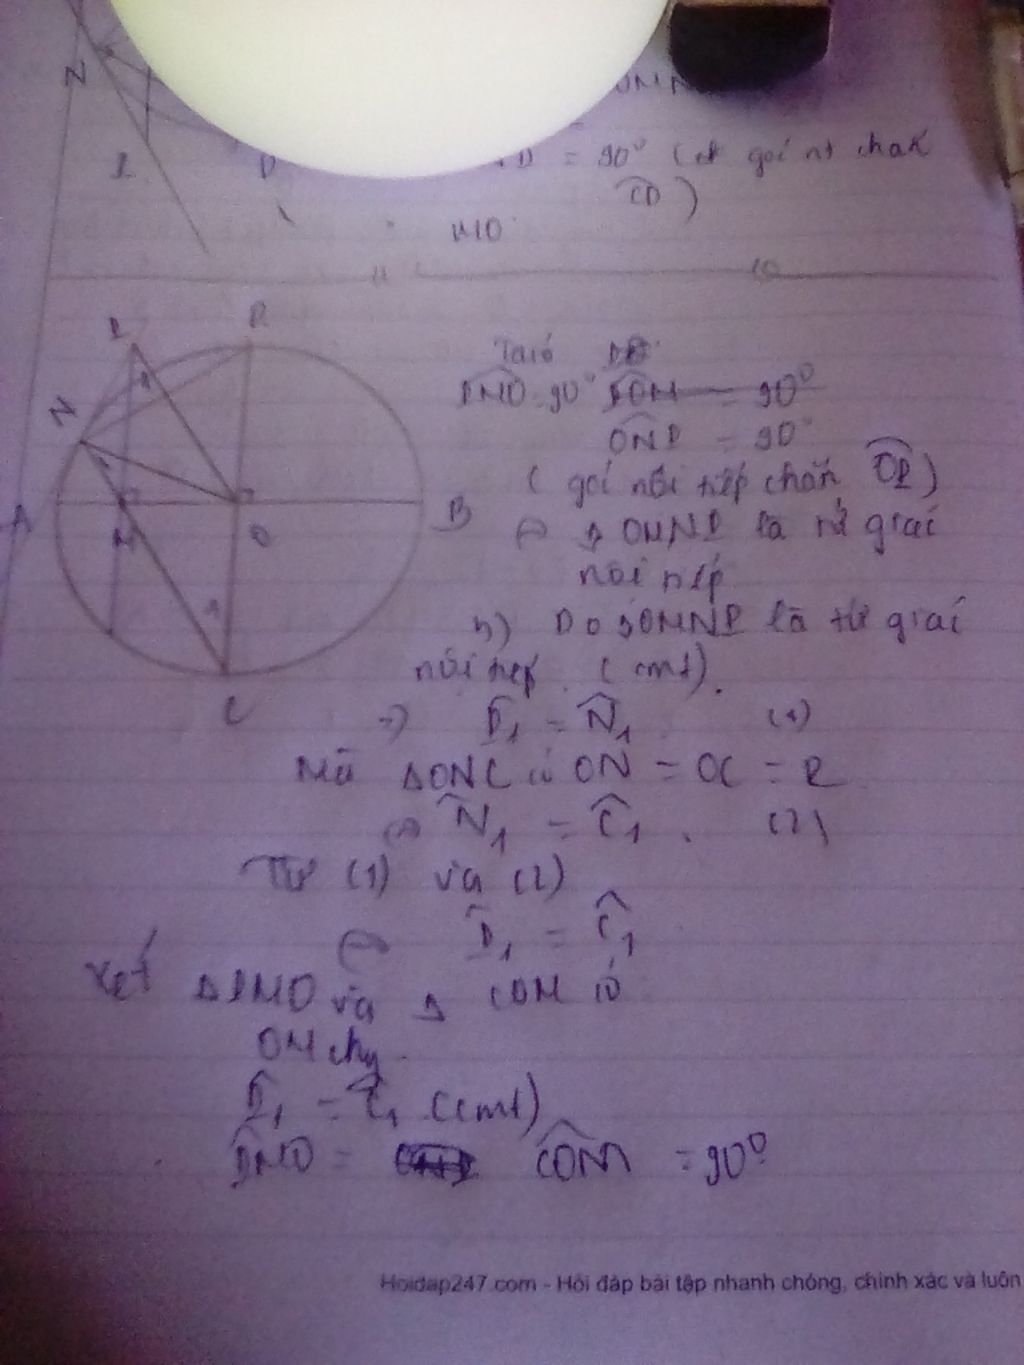 N
OMN
I
D
= 90° (
góc nt chắn
CD )
MO
I
R
N
A
M
O
B
C
Ta có
IMO = 90° IOM = 90°
ONI = 90°
( góc nội tiếp chắn OI )
=> OMNI là tứ giác
nội tiếp
b) Do OMNI là tứ giác
nội tiếp (cmt).
=> I₁ = N₁ (1)
Mà ΔONC có ON = OC = R
=> N₁ = C₁. (2)
Từ (1) và (2)
=> I₁ = C₁
Xét ΔIMO và Δ COM có
OM chg
I₁ = C₁ (cmt)
IMO = COM = 90°
Hoidap247.com - Hỏi đáp bài tập nhanh chóng, chính xác và luôn